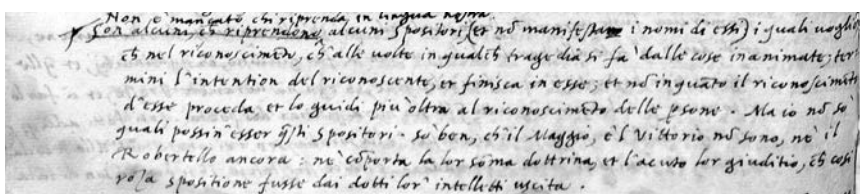 Non è mancato, chi riprenda, in lingua nostra
Son alcuni, ch riprendono alcuni spositori (et nõ manifestan i nomi di essi) i quali voglion,
ch nel riconoscimẽto, ch'alle volte in qualch tragedia si fa dalle cose inanimate; ter
mini l'intention del riconoscente, et finisca in esse; et nõ inquãto il riconoscimẽto
d'esse proceda et lo guidi piu oltra al riconoscimẽto delle psone. Ma io nõ so
quali possin'esser q̃sti spositori. so ben, ch'il Maggio, e'l Vittorio nõ sono, ne il
Robertello ancora: ne cõporta la lor sõma dottrina, et l'acuto lor giuditio, ch cosi
roza spositione fusse dai dotti lor' intelletti uscita.